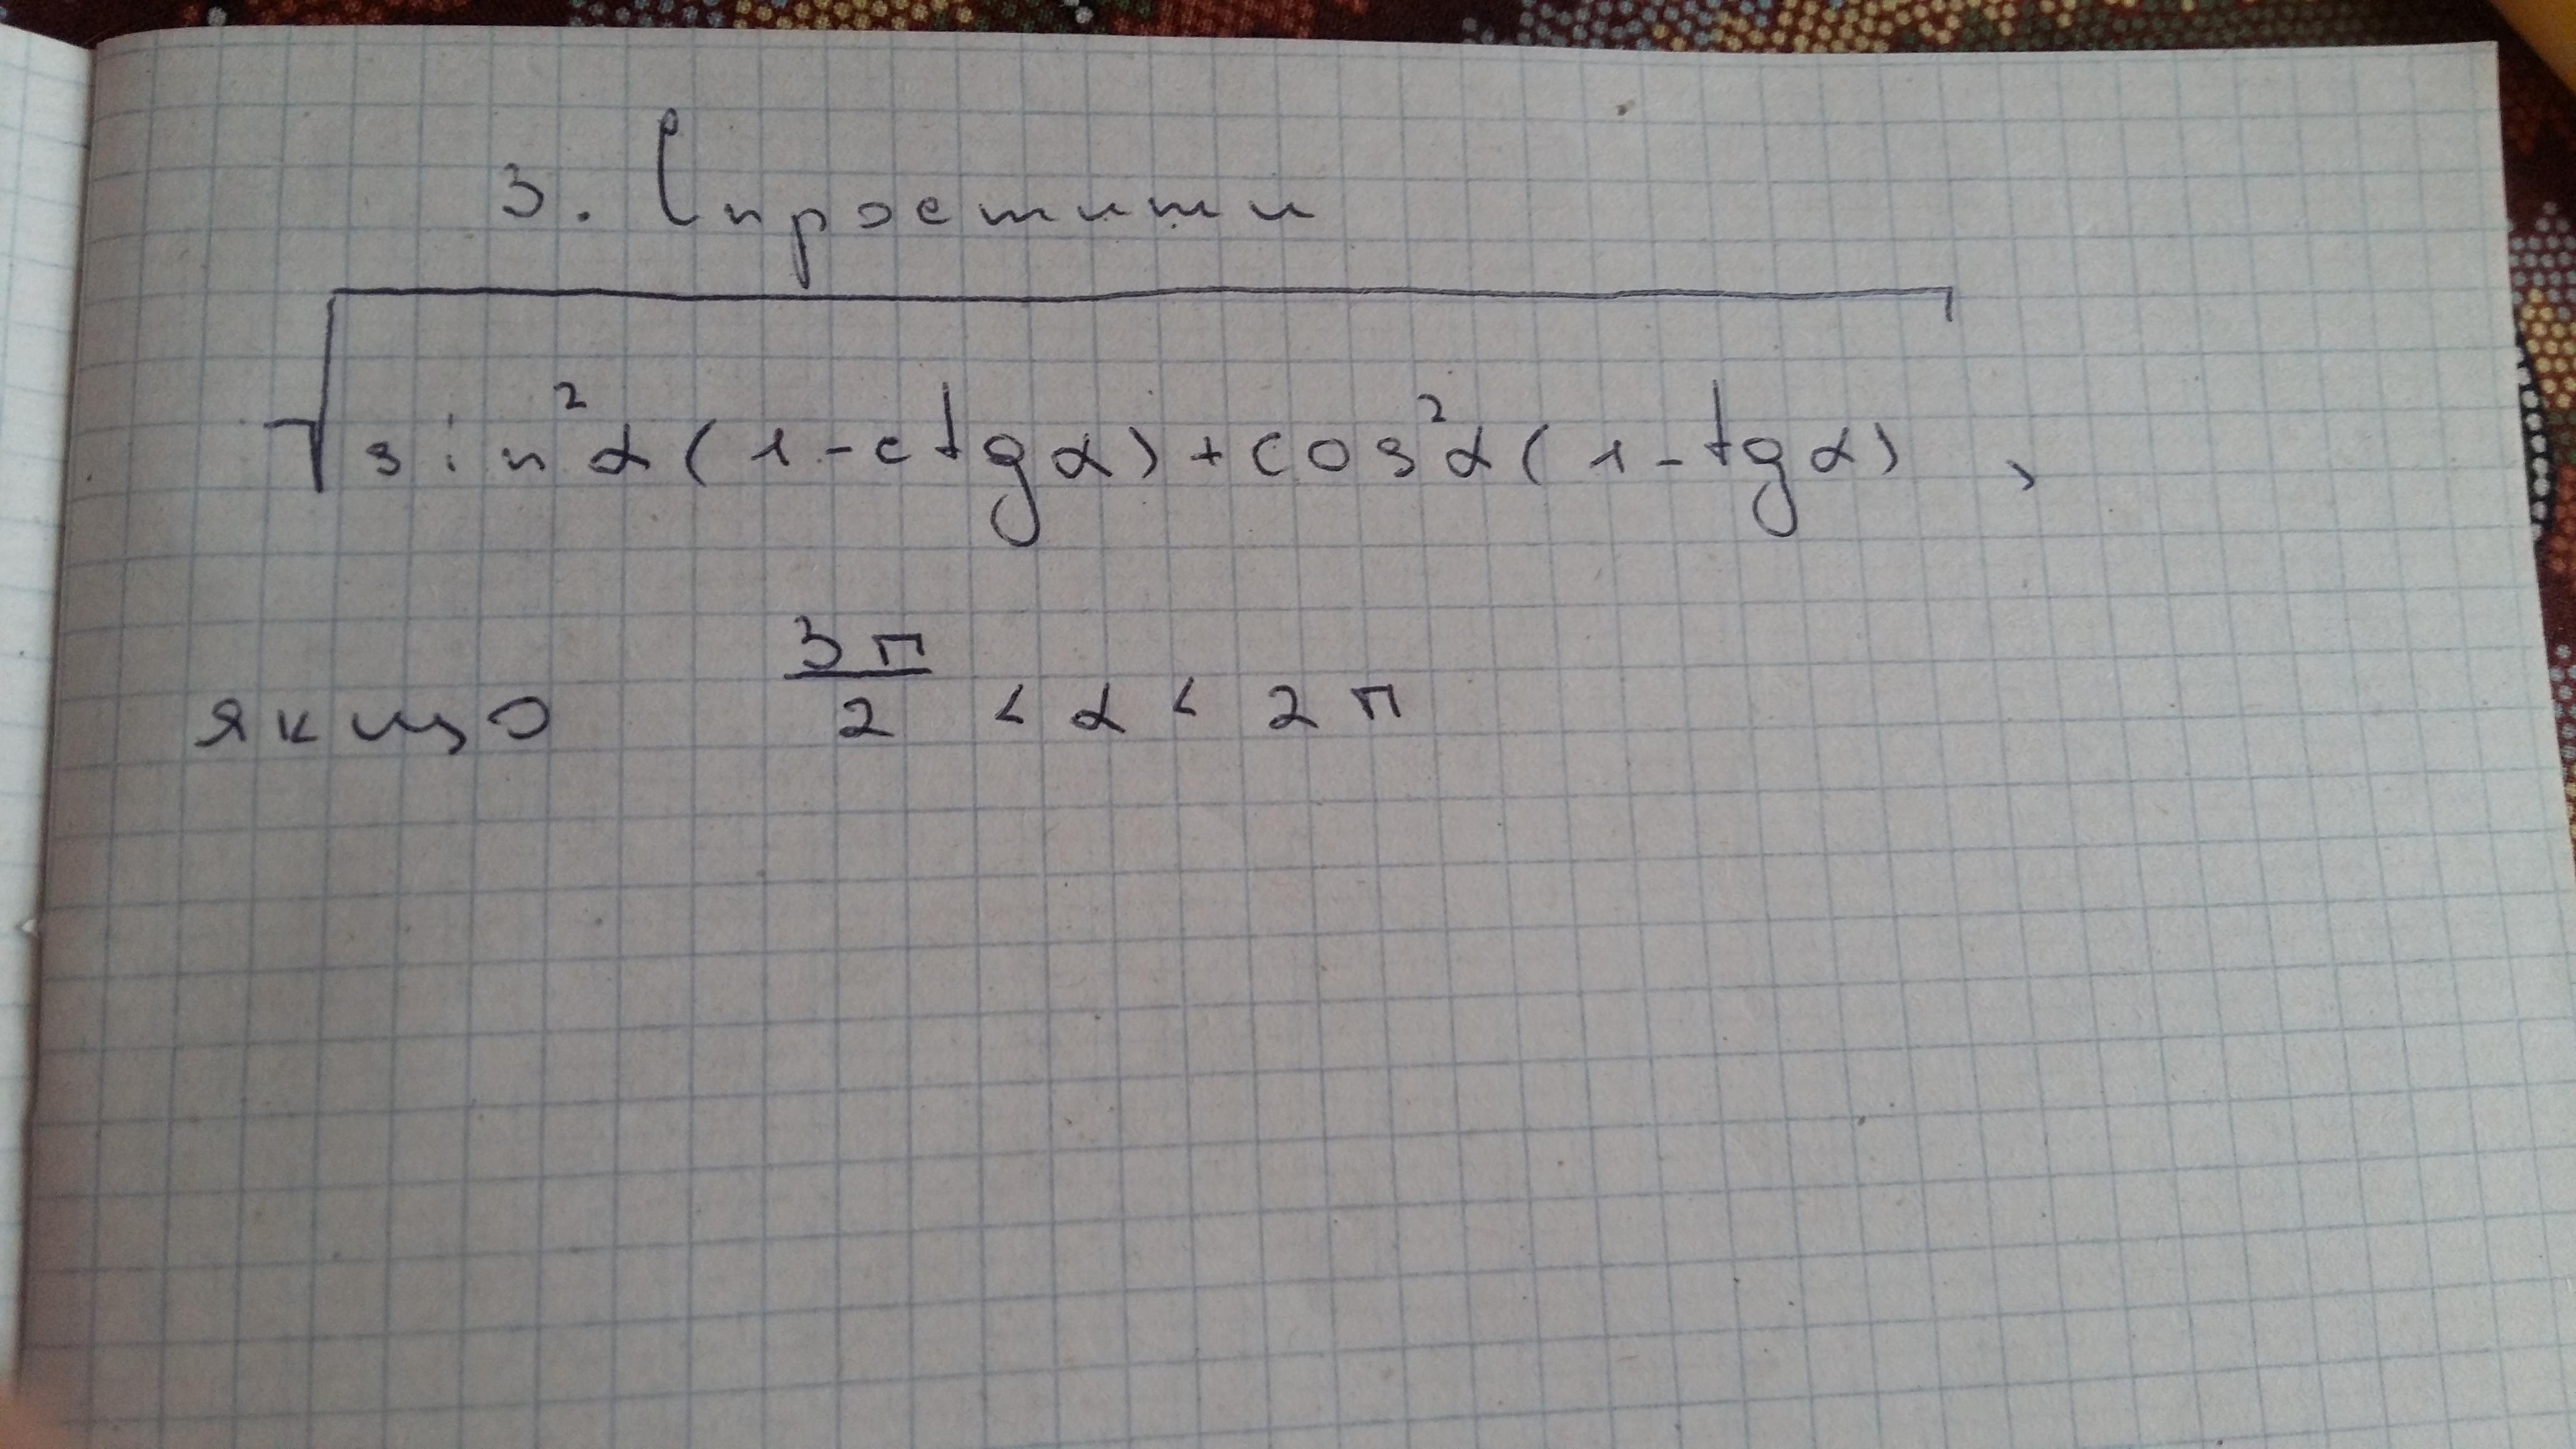 3. Спростити
√(sin²α(1-ctgα)+cos²α(1-tgα)) ,
якщо 3π/2 < α < 2π